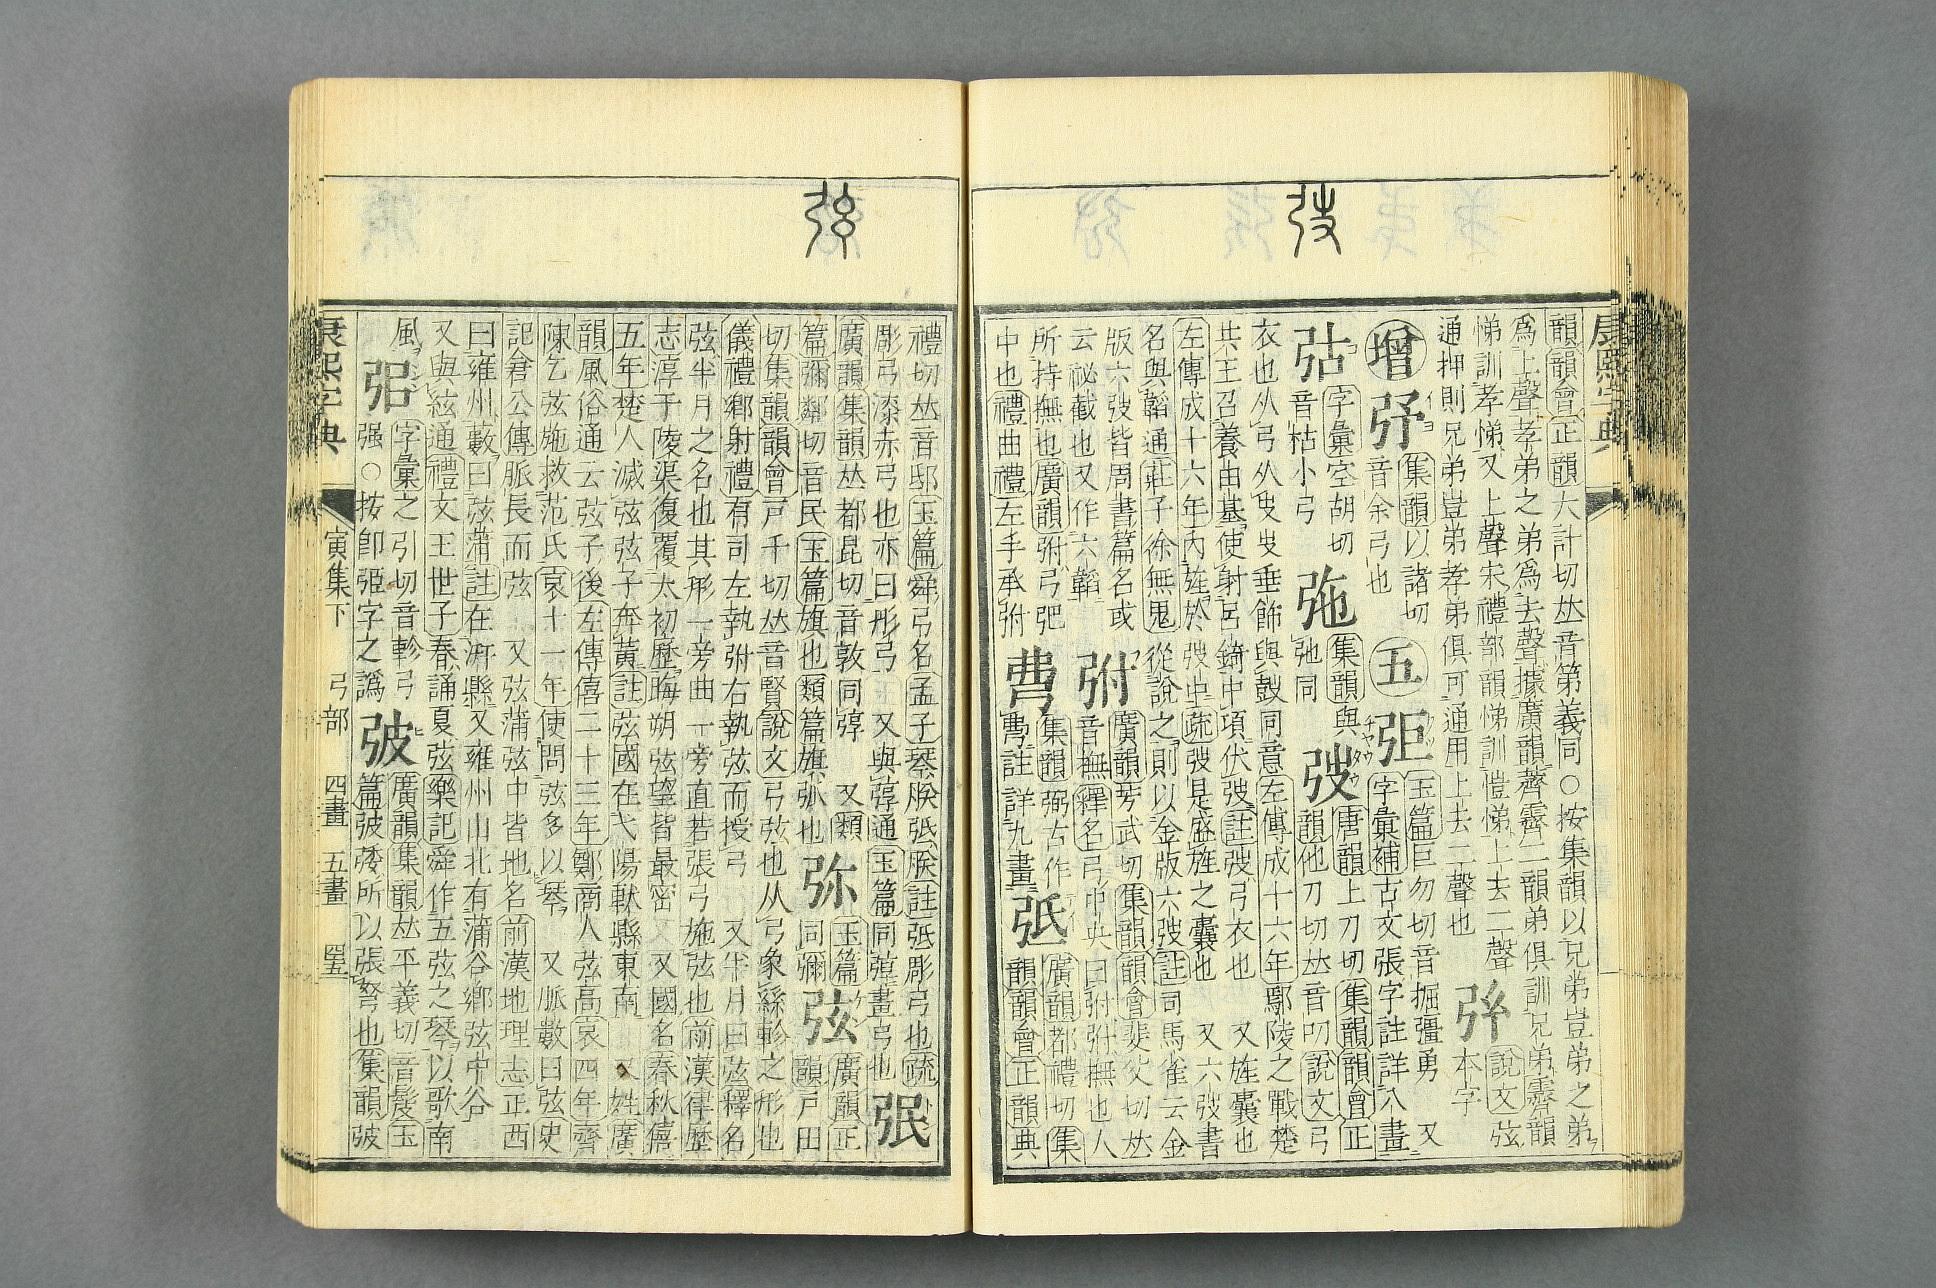 弢
康熙字典
韻韻會正韻大計切𠀤音第義同○按集韻以兄弟豈弟之弟
爲上聲孝弟之弟爲去聲據廣韻薺霽二韻弟俱訓兄弟霽韻
悌訓孝悌又上聲宋禮部韻悌訓愷悌上去二聲
通押則兄弟豈弟孝弟俱可通用上去二聲也
說文弦
本字
增
集韻以諸切
音余弓也
五
弡
玉篇巨勿切音掘彊勇 又
字彙補古文張字註詳八畫
字彙空胡切
音枯小弓
集韻與
弛同
弢
唐韻土刀切集韻韻會正
韻他刀切𠀤音叨說文弓
衣也从弓从㕚㕚垂飾與鼓同意左傳成十六年鄢陵之戰楚
共王召養由基使射呂錡中項伏弢註弢弓衣也 又旌囊也
左傳成十六年內旌於弢中疏弢是盛旌之囊也 又六弢書
名與韜通莊子徐無鬼從說之則以金版六弢註司馬崔云金
版六弢皆周書篇名或
云祕讖也又作六韜
弣
廣韻芳武切集韻韻會斐父切𠀤
音撫釋名弓中央曰弣弣撫也人
所持撫也廣韻弣弓弝
中也禮曲禮左手承弣
集韻弼古作
註詳九畫
弤
廣韻都禮切集
韻韻會正韻典
弦
禮切𠀤音邸玉篇舜弓名孟子琴朕弤朕註弤彫弓也疏
彫弓漆赤弓也亦曰彤弓 又與弴通玉篇同弴畫弓也
廣韻集韻𠀤都昆切音敦同弴 又類
篇彌鄰切音民玉篇旗也類篇旗弧也
弥
玉篇
同彌
弦
廣韻正
韻戶田
切集韻韻會戸千切𠀤音賢說文弓弦也从弓象絲軫之形也
儀禮鄉射禮有司左執弣右執弦而授弓 又半月曰弦釋名
弦半月之名也其形一旁曲一旁直若張弓施弦也前漢律歷
志淳于陵渠復覆太初歷晦朔弦望皆最密 又國名春秋僖
五年楚人滅弦弦子奔黃註弦國在弋陽軑縣東南 又姓廣
韻風俗通云弦子後左傳僖二十三年鄭商人弦高哀四年齊
陳乞弦施救范氏哀十一年使問弦多以琴 又脈數曰弦史
記倉公傳脈長而弦 又弦蒲弦中皆地名前漢地理志正西
曰雍州藪曰弦蒲註在汧縣又雍州山北有蒲谷鄉弦中谷
又與絃通禮文王世子春誦夏弦樂記舜作五弦之琴以歌南
風
字彙之引切音軫弓
强○按卽弫字之譌
㢱
廣韻集韻𠀤平義切音髲玉
篇㢱㢦所以張弩也集韻㢱
康熙字典 寅集下 弓部 四畫 五畫